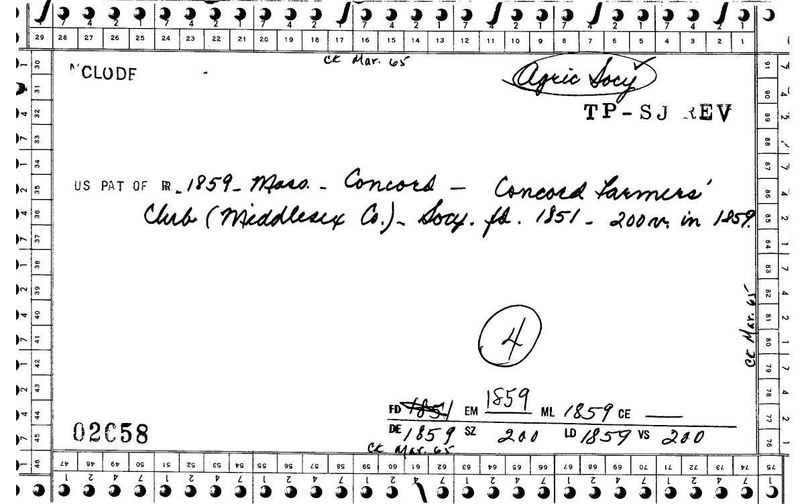 7 4 2 1 7 4 2 1 7 4 2 1 7 4 2 1 7 4 2 1 7 4 2 1 7 4 2 1
29 28 27 26 25 24 23 22 21 20 19 18 17 16 15 14 13 12 11 10 9 8 7 6 5 4 3 2 1
CK Mar. 65
CLODE
Agric Socy ✓
TP-SJ REV
US PAT OF FR - 1859 - Mass. - Concord - Concord Farmers'
Club (Middlesex Co.) - Socy. fd. 1851 - 200 m. in 1859.
4
CK Mar. 65
FD 1851 EM 1859 ML 1859 CE —
DE 1859 SZ 200 LD 1859 VS 200
02058
CK Mar. 65
30 31 32 33 34 35 36 37 38 39 40 41 42 43 44 45 46
47 48 49 50 51 52 53 54 55 56 57 58 59 60 61 62 63 64 65 66 67 68 69 70 71 72 73 74 75
76 77 78 79 80 81 82 83 84 85 86 87 88 89 90 91